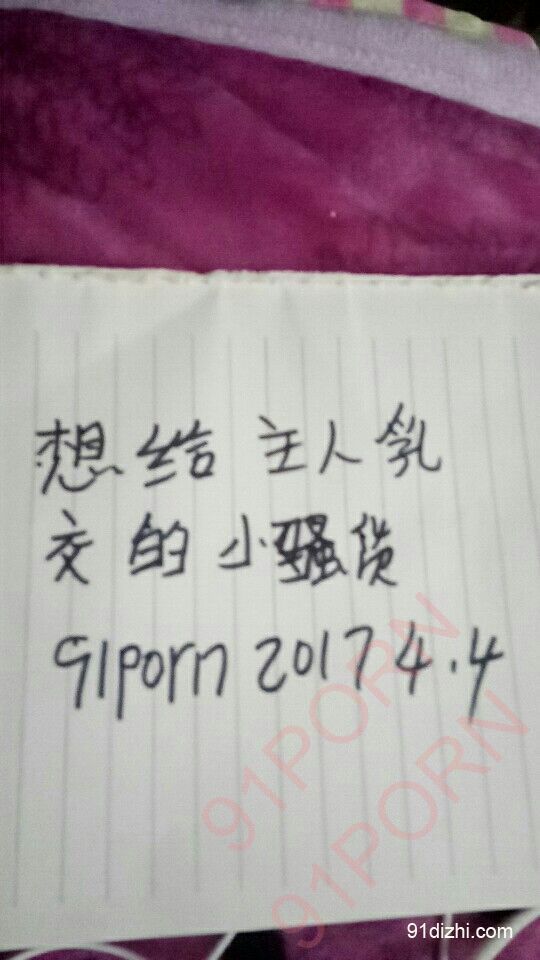 想给主人乳
交的小骚货
91porn 2017 4.4
91PORN
91PORN
91dizhi.com